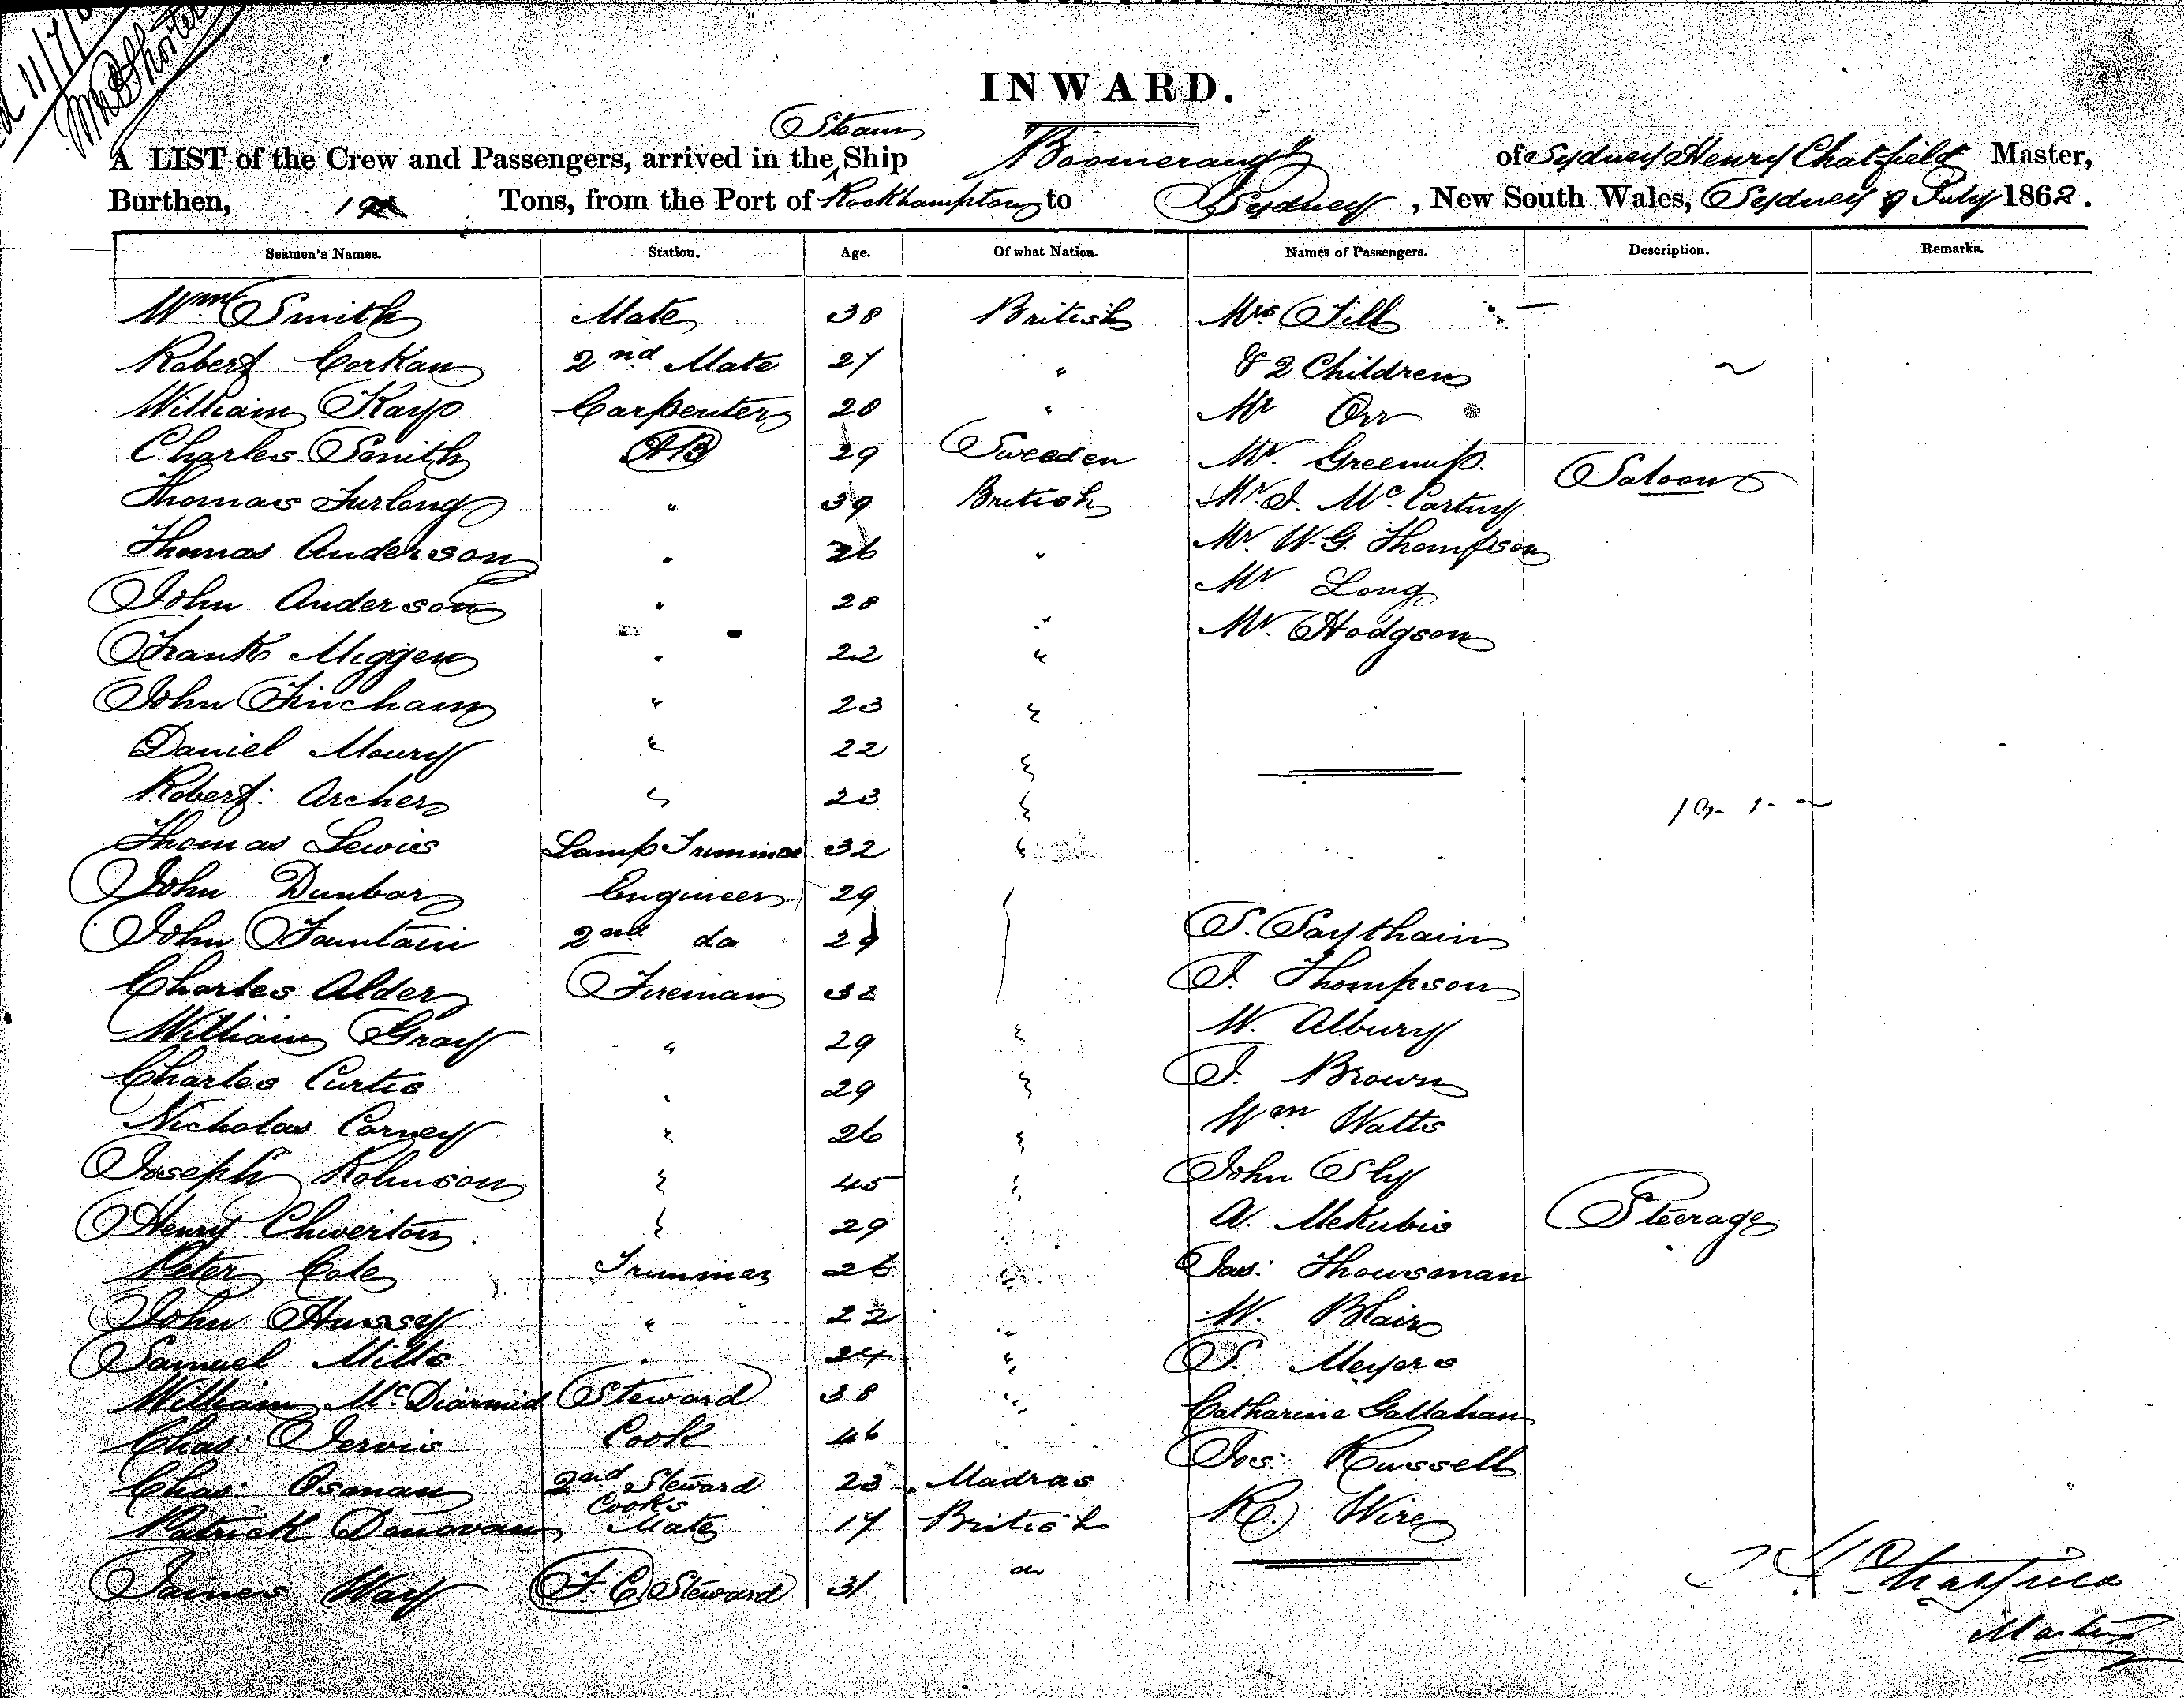 INWARD.
Steam
A LIST of the Crew and Passengers, arrived in the Ship "Boomerang" of Sydney Henry Chatfield Master,
Burthen, Tons, from the Port of Rockhampton to Sydney, New South Wales, Sydney 9 July 1862.
Seamen's Names. Station. Age. Of what Nation. Names of Passengers. Description. Remarks.
Wm Smith Mate 38 British Mrs Till
Robert Corkan 2nd Mate 27 " & 2 Children
William Kayo Carpenter 28 " Mr Orr
Charles Smith AB 29 Sweeden Mr. Greenup Saloon
Thomas Furlong " 39 British Mr. J. McCartny
Thomas Anderson " 26 " Mr W. G. Thompson
John Anderson " 28 " Mr Long
Frank Miggen " 22 " Mr. Hodgson
John Fincham " 23 "
Daniel Moury " 22 "
Robert Archer " 23 "
Thomas Lewis Lamp Trimmer 32 "
John Dunbar Engineer 29
John Fountain 2nd do 29 S. Saythain
Charles Alder Fireman 32 J. Thompson
William Gray " 29 " W. Albury
Charles Curtis " 29 " J. Brown
Nicholas Carney " 26 " Wm Watts
Joseph Robinson " 45 " John Sly
Henry Chiverton " 29 A. McKubio Steerage
Peter Cole Trimmer 26 " Jas: Thowsman
John Hussey " 22 " W. Blair
Samuel Mills " 24 " S. Meyers
William McDiarmid Steward 38 " Catharine Gallahan
Chas: Jervis Cook 46 " Jos: Russell
Chas: Osman 2nd Steward 23 Madras R. Wire
Patrick Donovan Cooks Mate 17 British
James Way F. C. Steward 31
Chatfield
Master